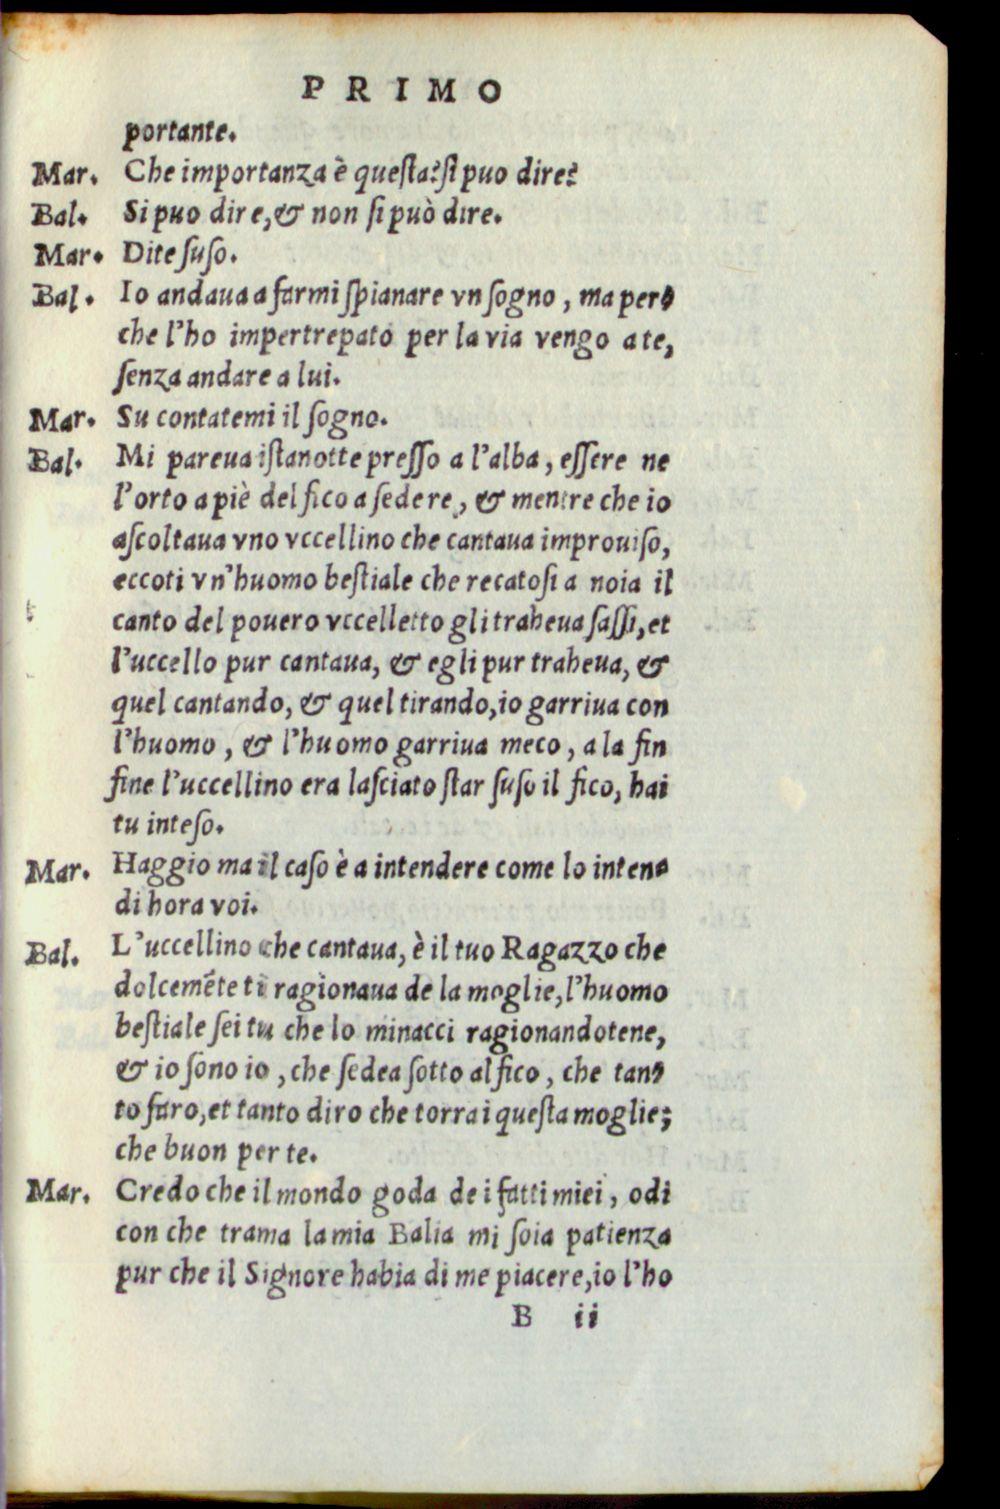 PRIMO
portante.
Mar. Che importanza è questa? si puo dire?
Bal. Si puo dire, & non si può dire.
Mar. Dite suso.
Bal. Io andaua a farmi spianare vn sogno, ma per-
che l'ho impertrepato per la via vengo a te,
senza andare a lui.
Mar. Su contatemi il sogno.
Bal. Mi pareua istanotte presso a l'alba, essere ne
l'orto a piè del fico a sedere, & mentre che io
ascoltaua vno vccellino che cantaua improuiso,
eccoti vn'huomo bestiale che recatosi a noia il
canto del pouero vccelletto gli traheua sassi, et
l'uccello pur cantaua, & egli pur traheua, &
quel cantando, & quel tirando, io garriua con
l'huomo, & l'huomo garriua meco, a la fin
fine l'uccellino era lasciato star suso il fico, hai
tu inteso.
Mar. Haggio ma il caso è a intendere come lo inten-
di hora voi.
Bal. L'uccellino che cantaua, è il tuo Ragazzo che
dolcemēte ti ragionaua de la moglie, l'huomo
bestiale sei tu che lo minacci ragionandotene,
& io sono io, che sedea sotto al fico, che tan-
to faro, et tanto diro che torrai questa moglie;
che buon per te.
Mar. Credo che il mondo goda de i fatti miei, odi
con che trama la mia Balia mi soia patienza
pur che il Signore habia di me piacere, io l'ho
B ii